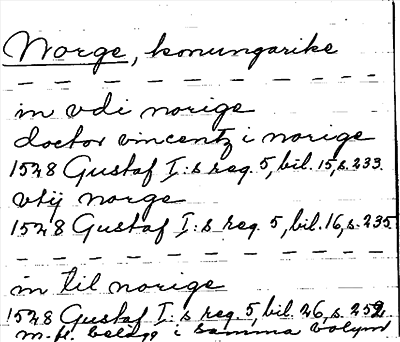 Norge, konungarike
in vdi norige
doctor vincentz i norige
1528 Gustaf I:s reg. 5, bil. 15, s. 233.
vtij norge
1528 Gustaf I:s reg. 5, bil. 16, s. 235.
in til norige
1528 Gustaf I:s reg. 5, bil. 26, s. 252
m.fl. belägg i samma volym